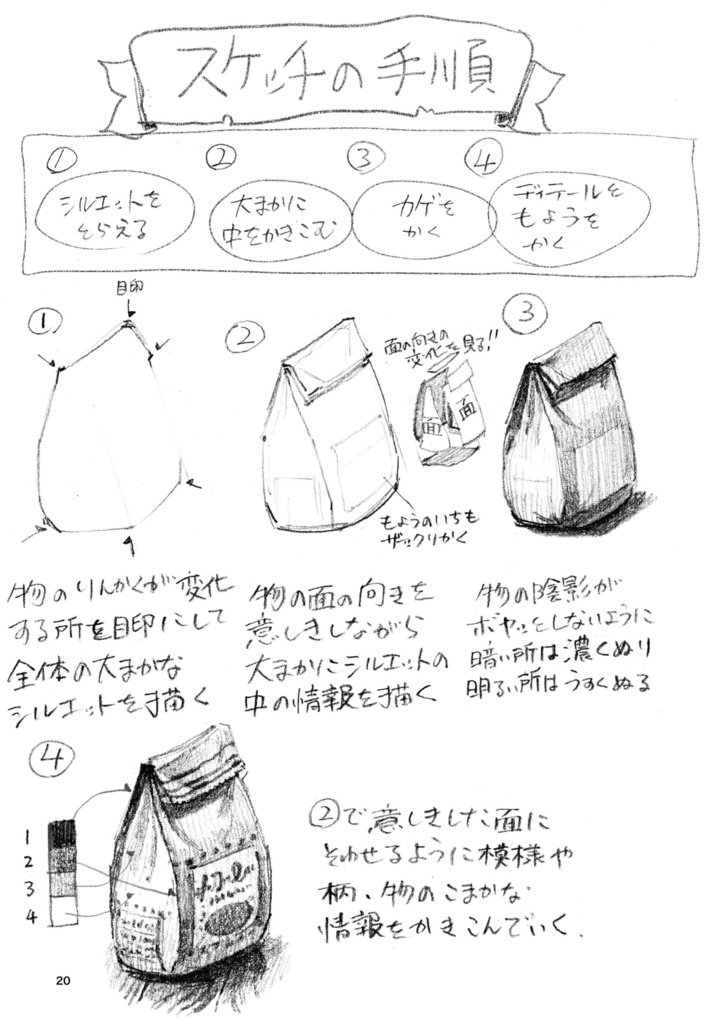 スケッチの手順
①
シルエットを
とらえる
②
大まかに
中をかきこむ
③
カゲを
かく
④
ディテールと
もようを
かく
①
目印
②
面の向きの
変化を見る!!
面
面
もようのいちも
ザックリかく
③
物のりんかくが変化
する所を目印にして
全体の大まかな
シルエットを描く
物の面の向きを
意しきしながら
大まかにシルエットの
中の情報を描く
物の陰影が
ボヤッとしないように
暗い所は濃くぬり
明るい所はうすくぬる
④
1
2
3
4
②で意しきした面に
そわせるように模様や
柄、物のこまかな
情報をかきこんでいく.
20